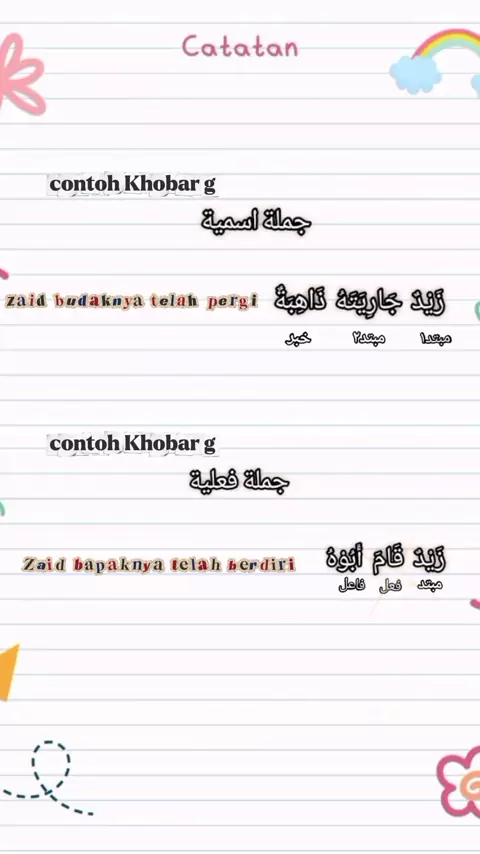 Catatan
contoh Khobar g
جملة اسمية
زَيْدٌ جَارِيَتَهُ ذَاهِبَةٌ
zaid budaknya telah pergi
مبتد١ مبتد٢ خبر
contoh Khobar g
جملة فعلية
زَيْدٌ قَامَ أَبُوْهُ
Zaid bapaknya telah berdiri
مبتد فعل فاعل